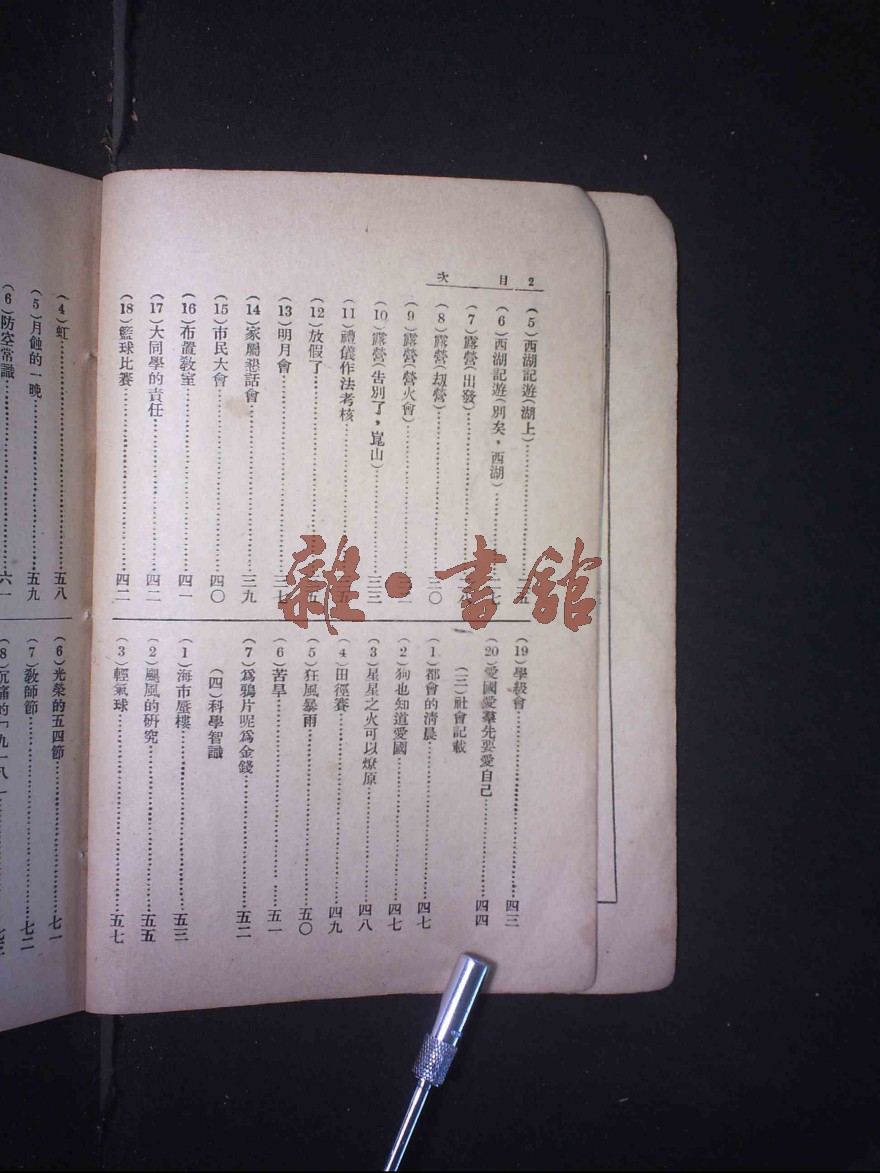 2 目次
（5）西湖記遊（湖上）
（6）西湖記遊（別矣，西湖）
（7）露營（出發）
（8）露營（刧營）……三〇
（9）露營（營火會）
（10）露營（告別了，崑山）……三三
（11）禮儀作法考核
（12）放假了
（13）明月會
（14）家屬懇話會……三九
（15）市民大會……四〇
（16）布置敎室……四一
（17）大同學的責任……四二
（18）籃球比賽……四二
（19）學級會……四三
（20）愛國愛羣先要愛自己……四四
（三）社會記載
（1）都會的淸晨……四七
（2）狗也知道愛國……四七
（3）星星之火可以燎原……四八
（4）田徑賽……四九
（5）狂風暴雨……五〇
（6）苦旱……五一
（7）爲鴉片呢爲金錢……五二
（四）科學智識
（1）海市蜃樓……五三
（2）颶風的硏究……五五
（3）輕氣球……五七
（4）虹……五八
（5）月蝕的一晚……五九
（6）防空常識……六一
（6）光榮的五四節……七一
（7）敎師節……七二
（8）沉痛的「九一八」
雜·書館